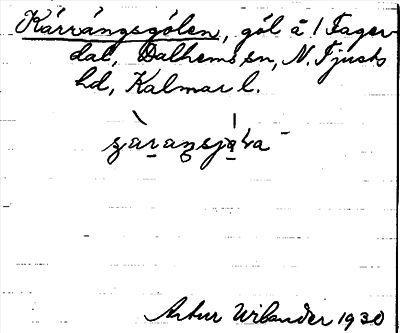 Kärrängsgölen, göl å 1 Fager-
dal, Dalhems sn, N. Tjusts
hd, Kalmar l.
Artur Wilander 1930